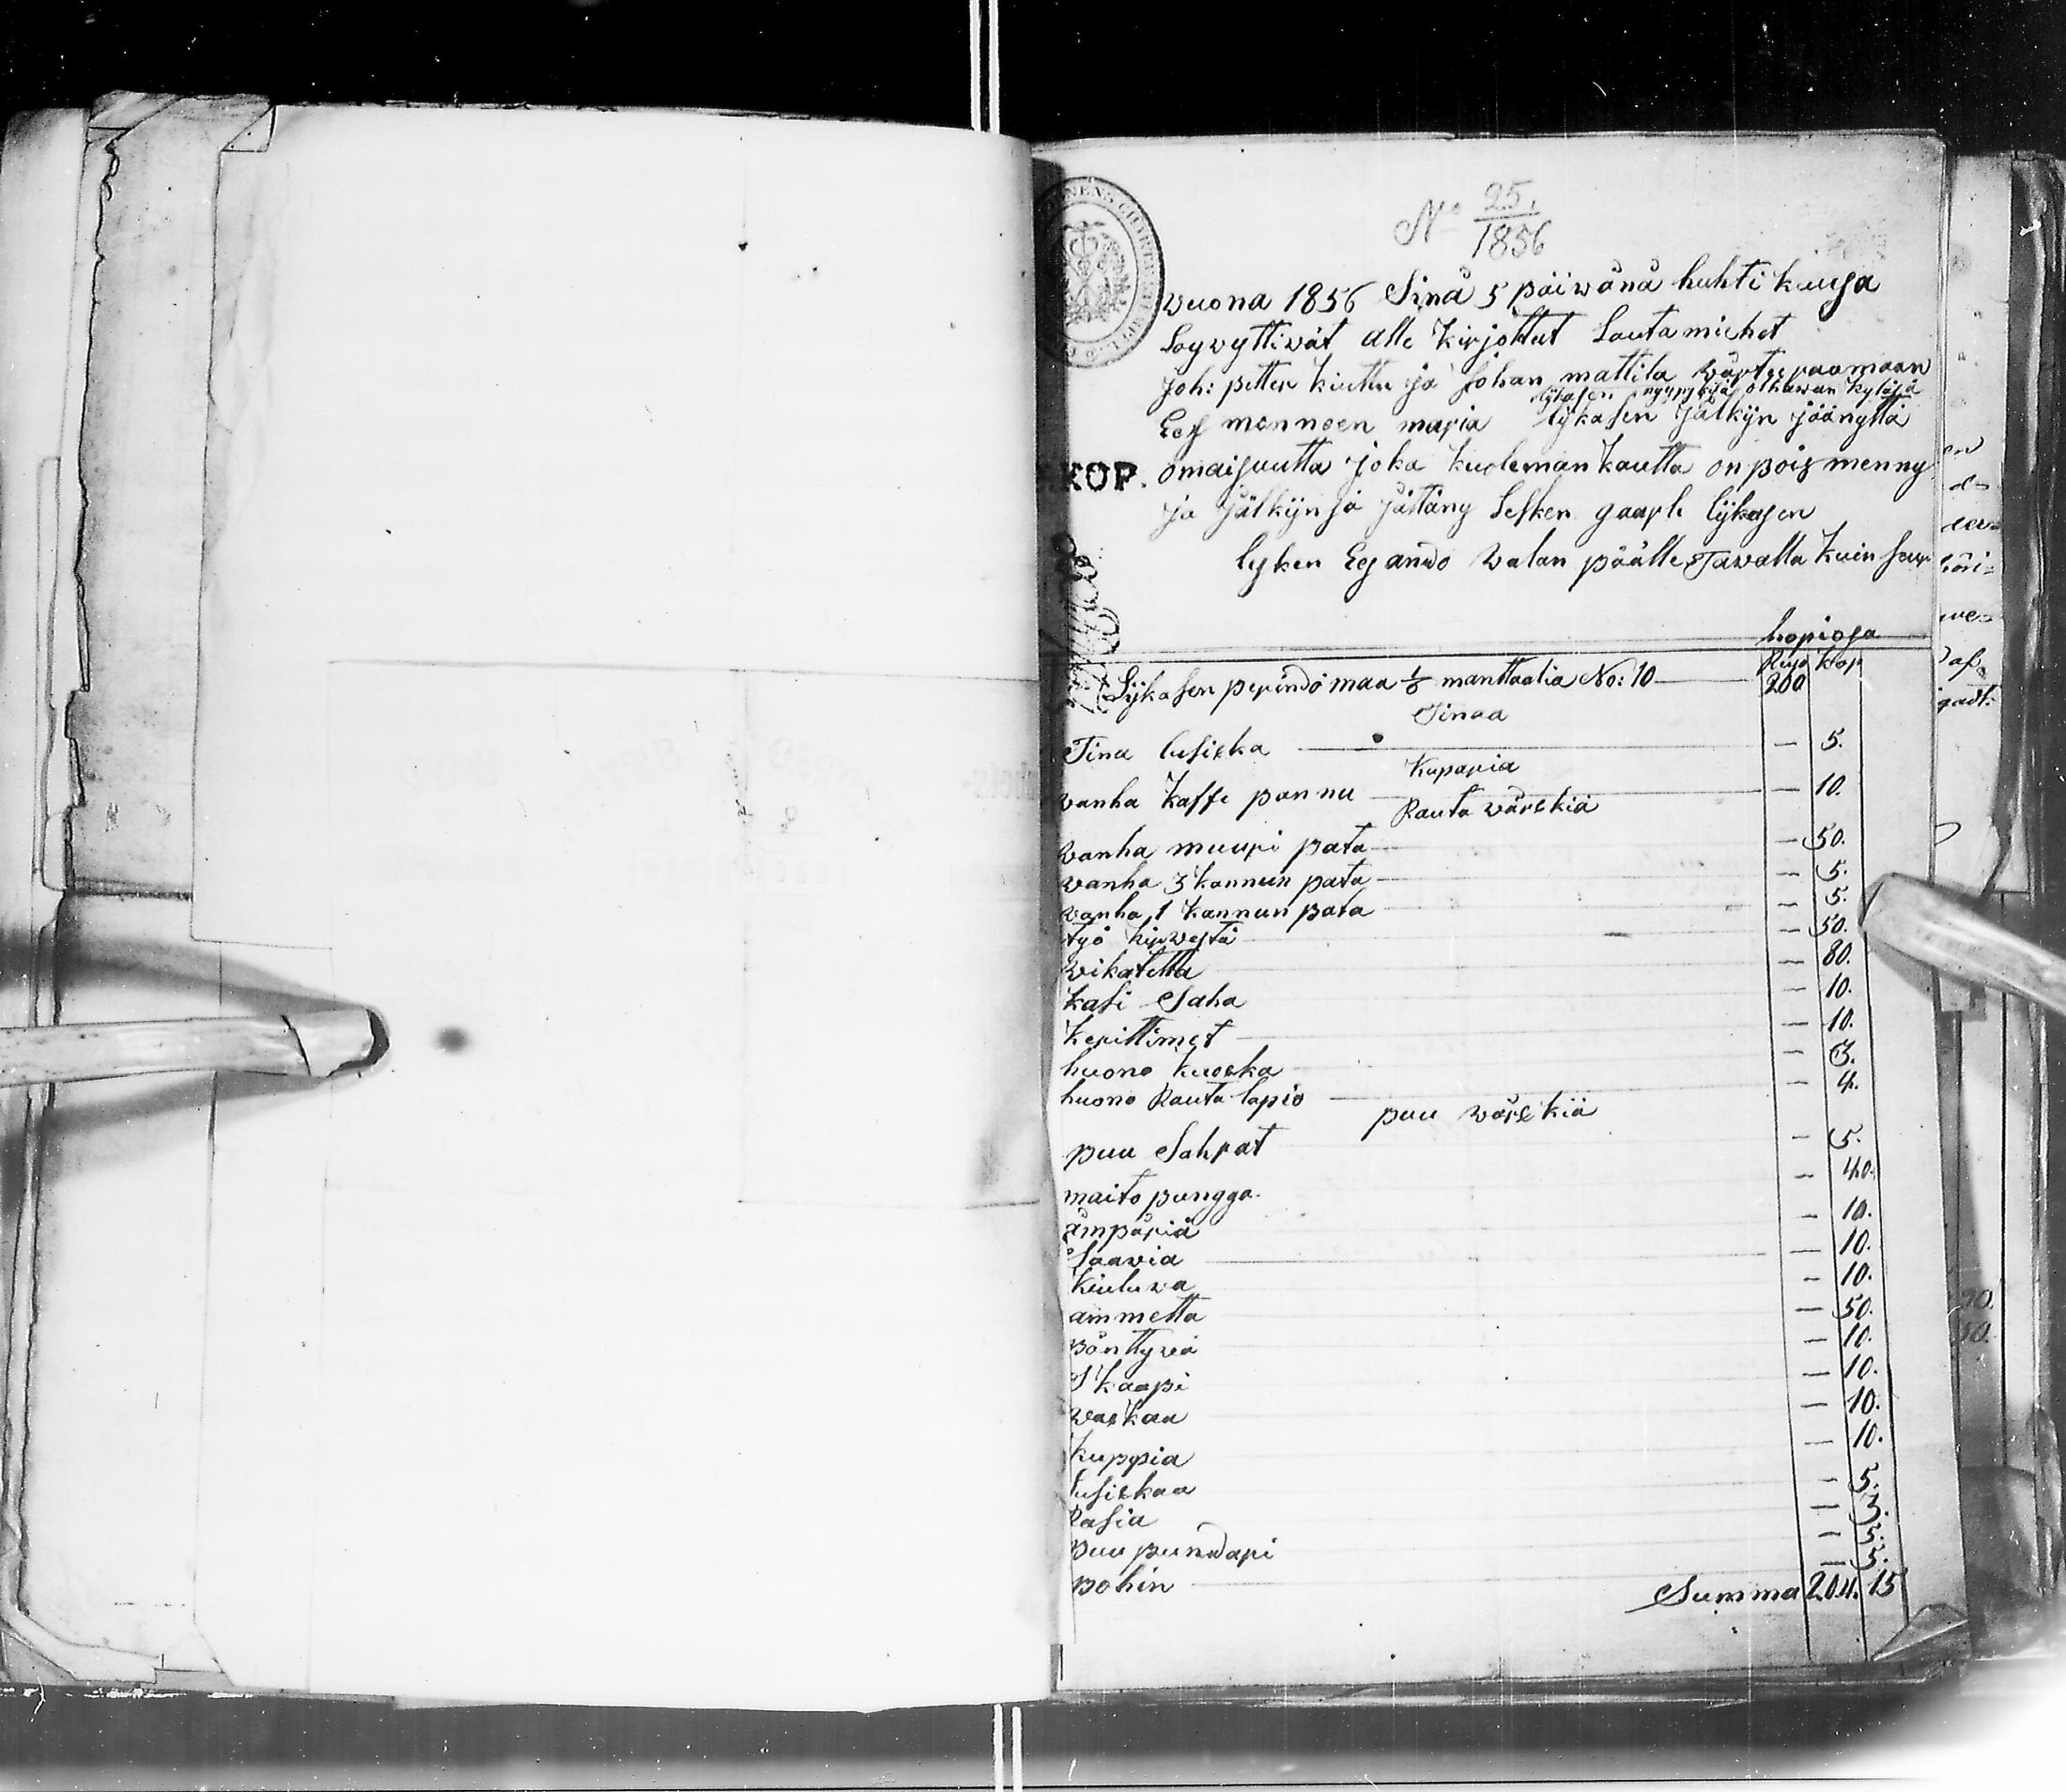 No 25/1856
wuona 1856 Sinä 5 päiwänä huhti kuusa
Löywyttiwät alle kirjoittut Lautamiehet
Joh: petter kiuttu ja Johan mattila wärteeraamaan
lijkasen kylässä
Ees mennen maria lijkasen jälkijn jäänyttä
KOP. omaisuutta joka kuoleman kautta on pois menny
ja jälkijnsä jättäny Lesken gaarle lijkasen
lesken Es andö walan päälle Tawalla kuin seur
hopiosa
Rup kop
Lijkasen perindö maa 1/6 manttaalia No: 10 — 200
Tinaa
Tina lusicka — — 5.
Kuparia
wanha kaffe pannu — — 10.
Rauta wärckiä
wanha muuri pata — — 50.
wanha 3 kannun pata — — 5.
wanha 1 kannun pata — 5.
työ kirwestä — — 50.
wikatetta — 80.
käsi Saha — 10.
kerittimet — — 10.
huono kuocka — 3.
huono Rauta lapio — — 4.
puu wärckiä
puu Sahrat — 5.
maito pungga — 40.
ämpäriä — 10.
Saawia — — 10.
kiuluwa — 10.
ammetta — 50.
pönttyiä — 10.
Skaapi — 10.
wackaa — 10.
kuppia — 10.
lusickaa — 5.
Rasia — 3.
puu pundari — 5.
pohin — — 5.
Summa 204. 15